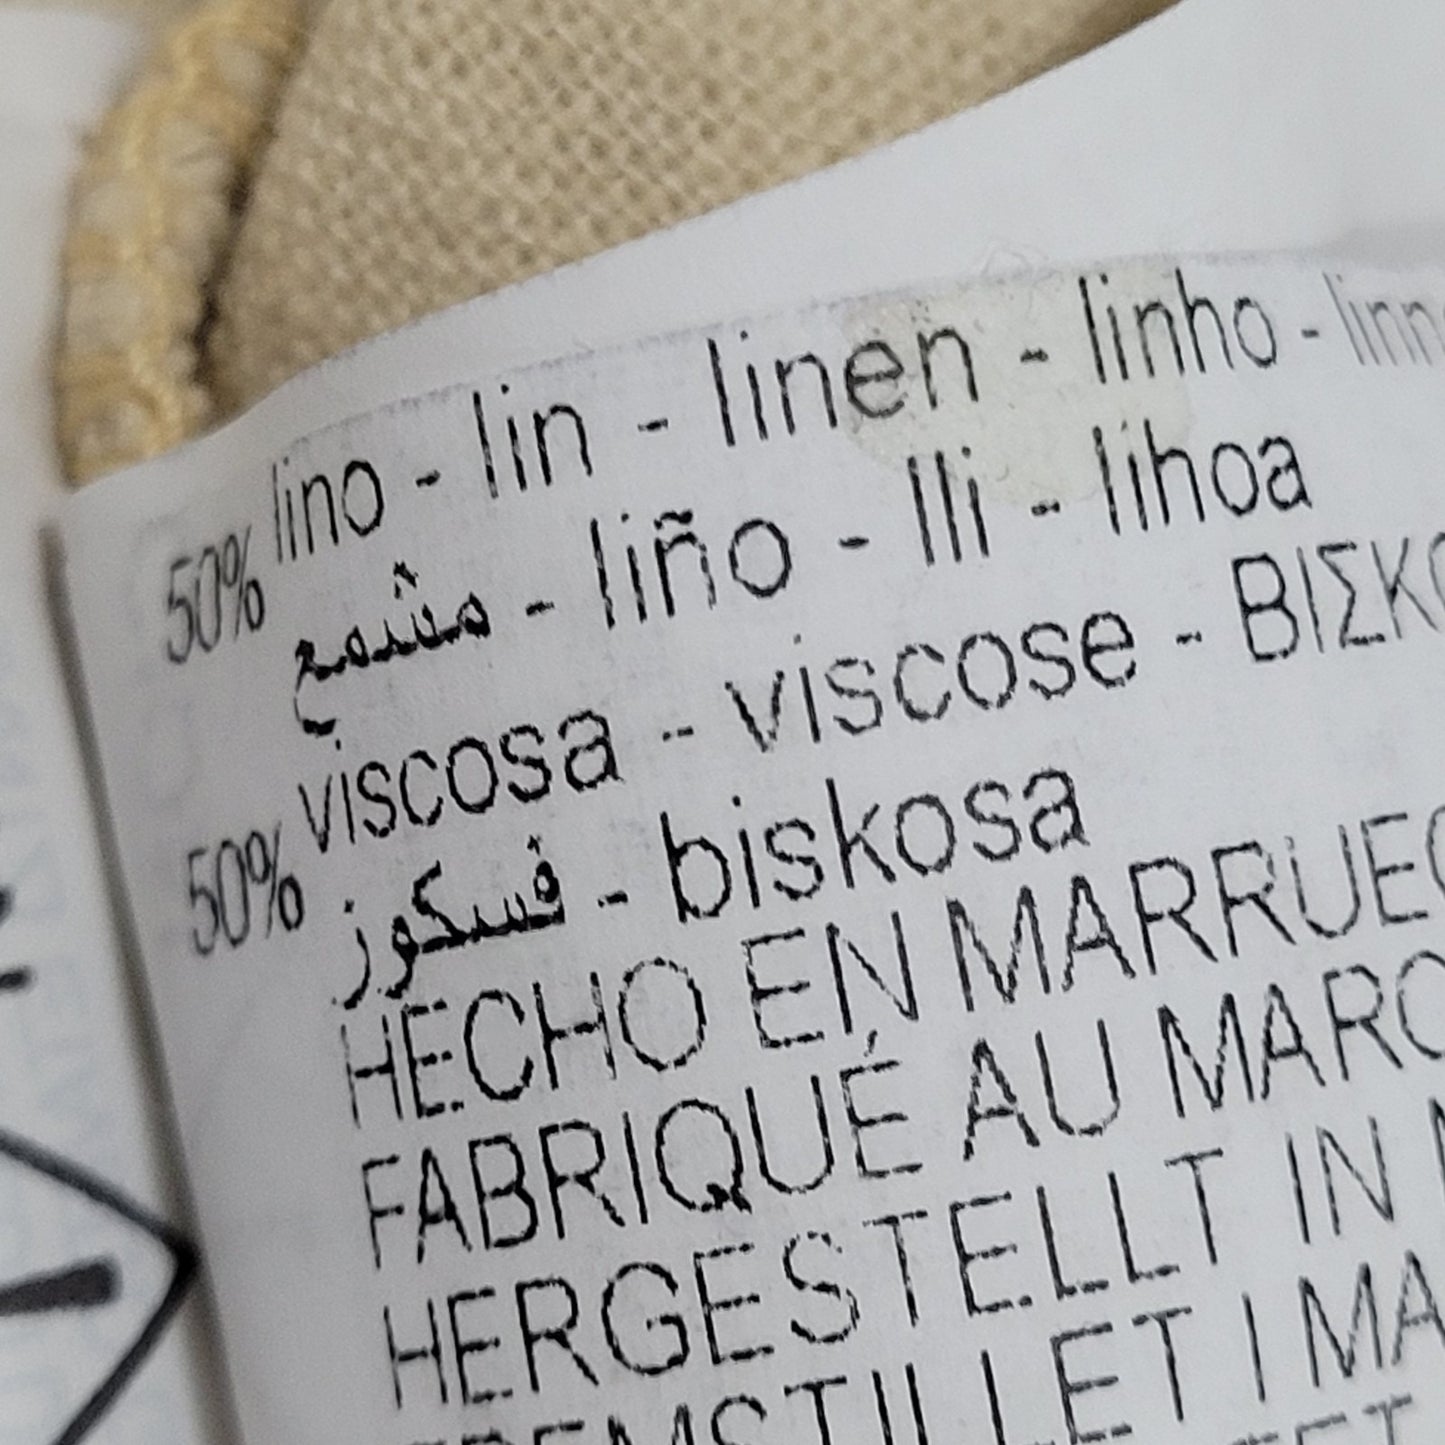 50% lino - lin - linen - linho - linn
مشمع - liño - lli - lihoa
50% viscosa - viscose - ΒΙΣΚ
فسكوز - biskosa
HECHO EN MARRUEC
FABRIQUÉ AU MARO
HERGESTELLT IN
FREMSTILLET I MA